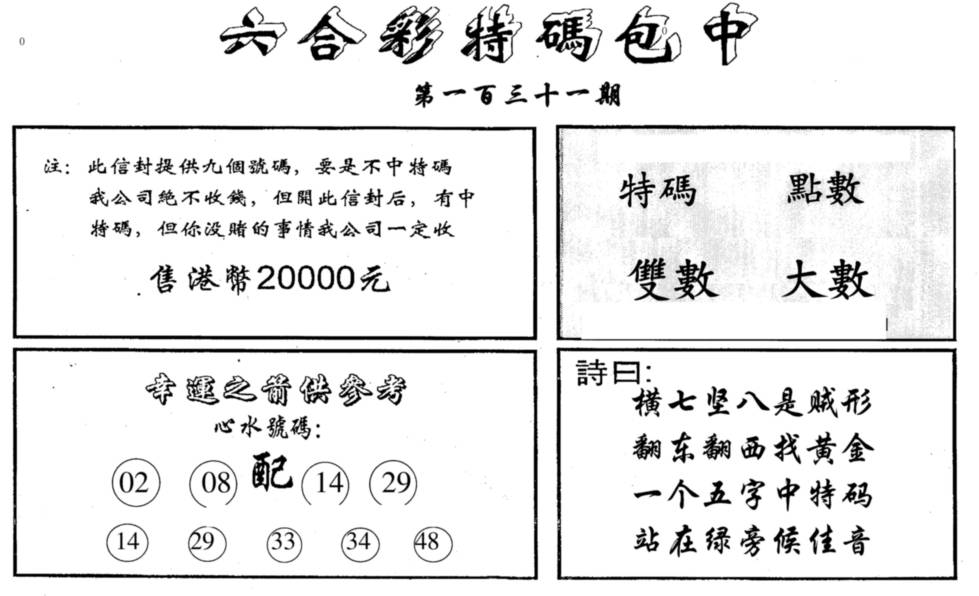 0
六合彩特碼包中
第一百三十一期
注：此信封提供九個號碼，要是不中特碼
我公司絕不收錢，但開此信封后，有中
特碼，但你没賭的事情我公司一定收
售港幣20000元
特碼 點數
雙數 大數
幸運之箭供參考
心水號碼：
02 08 配 14 29
14 29 33 34 48
詩曰：
横七坚八是贼形
翻东翻西找黄金
一个五字中特码
站在绿旁候佳音